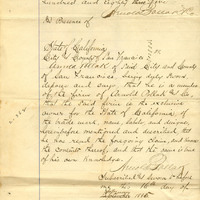 hundred and eighty five
In Presence of
State of California
City & County of San Francisco
August Pollak of said City and County
of San Francisco, being duly sworn,
deposes and says, that he is a member
of the firm of Arnold Pollak & Co.
that the said firm is the exclusive
owner for the State of California, of
the trade mark, name, label, and design,
hereinbefore mentioned and described, that
he has read the foregoing claim, and knows
the contents thereof, and that the same is true
of his own knowledge.
Subscribed and sworn to before
me this 16th day of
1885